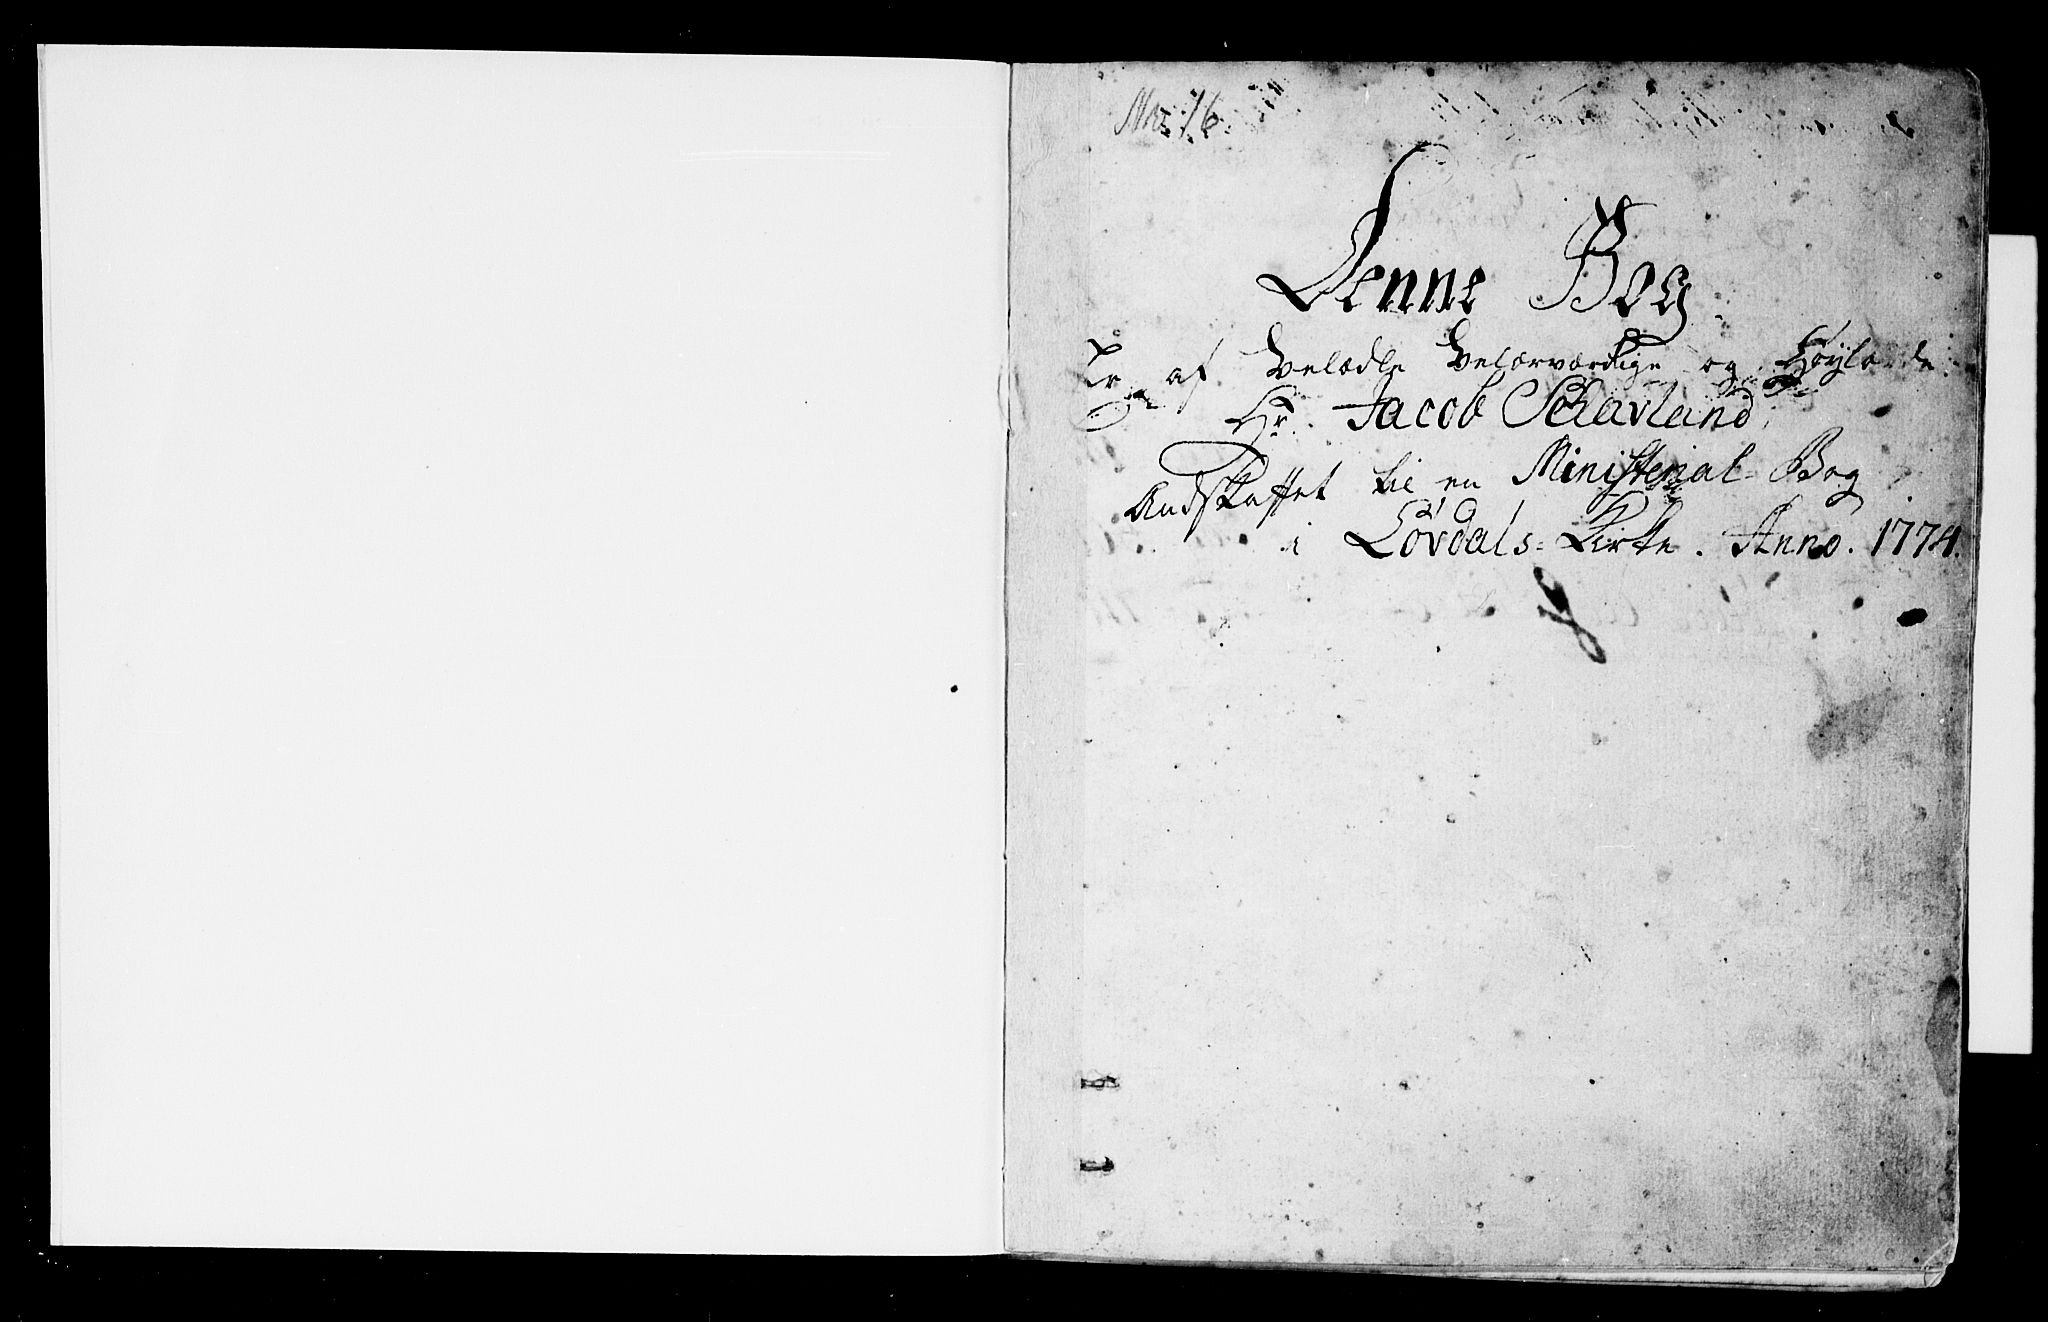 No: 16
Denne Bog
Er af Velædle Velærværdige og Høylærde
Hr. Jacob Schavland,
Andskaffet til en Ministerial-Bog
i Lørdals-Kirke. Anno. 1774.